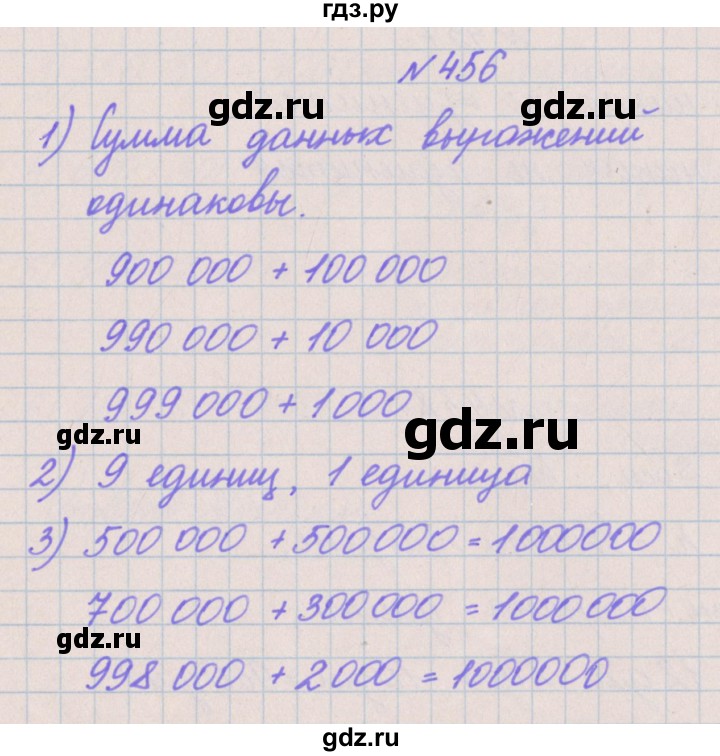 гдз.ру
№ 456
gdz.ru gdz.ru
1) Сумма данных выражений
одинаковы.
900 000 + 100 000
990 000 + 10 000
999 000 + 1 000
gdz.ru gdz.ru
2) 9 единиц, 1 единица
3) 500 000 + 500 000 = 1000000
700 000 + 300 000 = 1000 000
gdz.ru
998 000 + 2000 = 1000000
gdz.ru